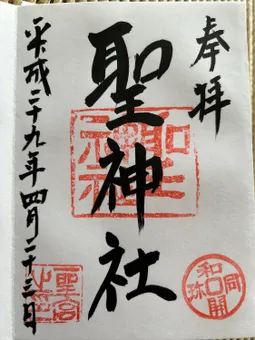 奉拝
聖神社
平成二十九年四月二十三日
和同開珎